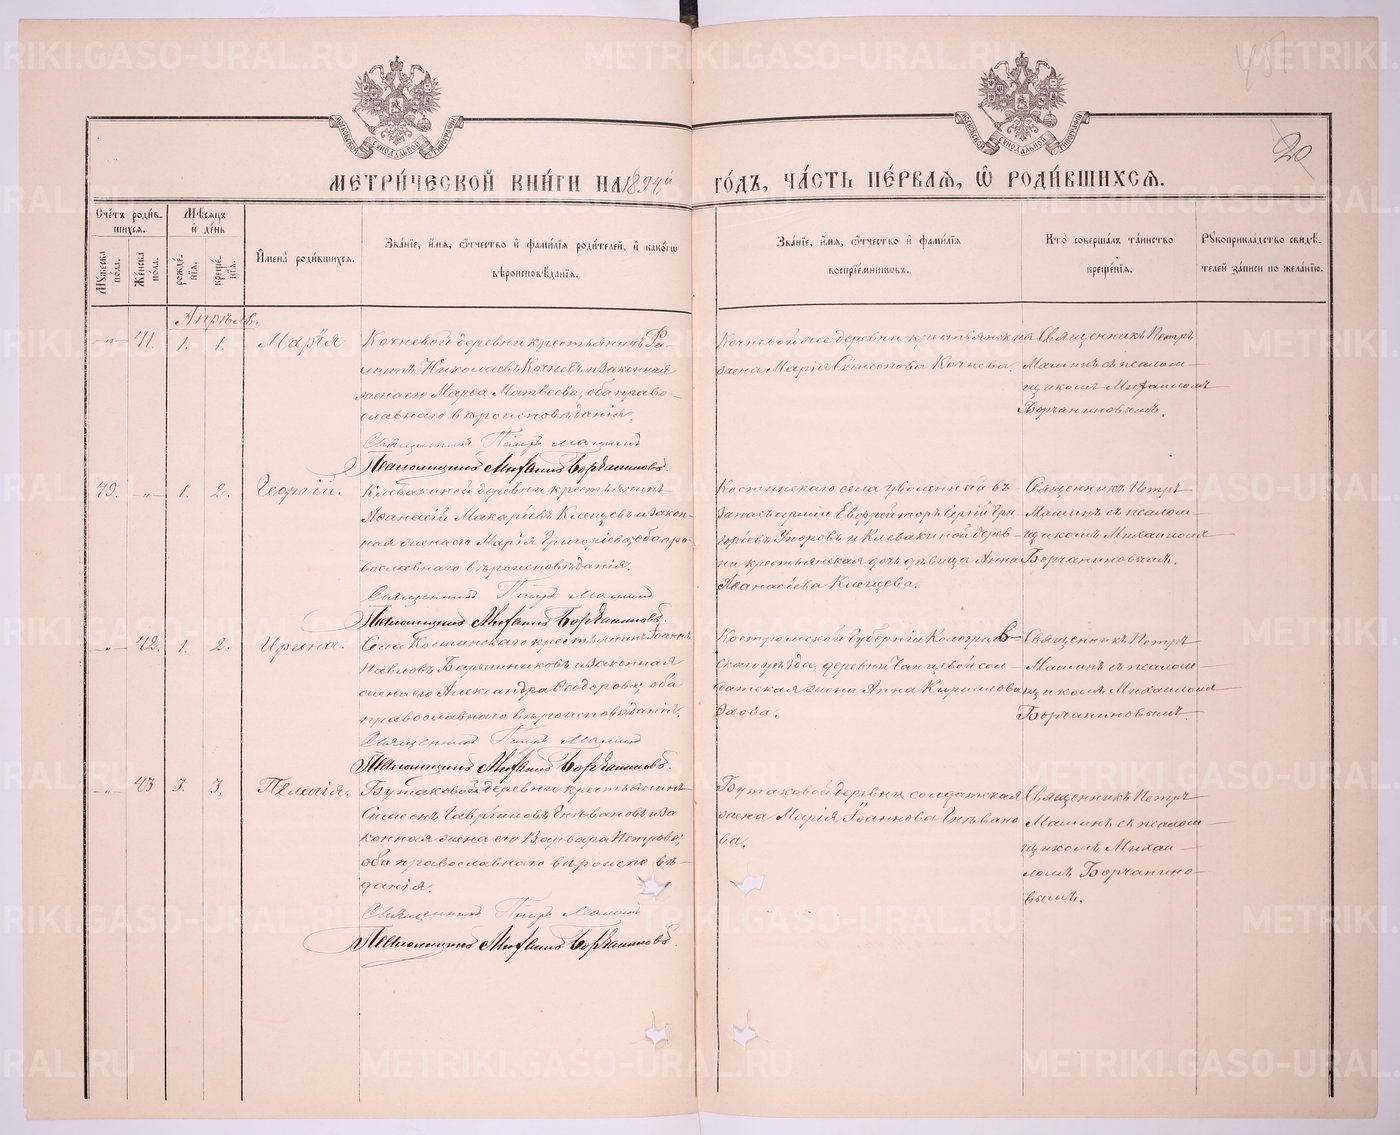 457
20
МОСКОВСКОЙ СѴНОДАЛЬНОЙ ТИПОГРАФІИ
МОСКОВСКОЙ СѴНОДАЛЬНОЙ ТИПОГРАФІИ
МЕТРИ́ЧЕСКОЙ КНИ́ГИ НА 1894й ГО́ДЪ, ЧА́СТЬ ПЕ́РВАѦ, Ѡ҆ РОДИ́ВШИХСѦ.
Сче́тъ роди́в-
шихсѧ.
Мꙋ́жеска пола.
Же́нска пола.
Мѣ́сѧцъ
и҆ де́нь
рожде́нїѧ.
креще́нїѧ.
И҆мена̀ роди́вшихсѧ.
Зва́нїе, и҆́мѧ, ѻ҆́тчество и҆ фами́лїѧ роди́телей, и҆ како́гѡ
вѣроисповѣ́данїѧ.
Зва́нїе, и҆́мѧ, ѻ҆́тчество и҆ фами́лїѧ
воспрїе́мникѡвъ.
Кто̀ соверша́лъ та́инство
креще́нїѧ.
Рꙋкоприкла́дство свидѣ́-
телей за́писи по жела́нїю.
Апрѣль.
—„— 41. 1. 1. Марія
Кочневой деревни крестьянинъ Фи-
липпъ Николаевъ Кочневъ и законная
жена его Марѳа Матвеева, оба право-
славнаго вѣроисповѣданія.
Священникъ Петръ Машинъ
Псаломщикъ Михаилъ Борчаниновъ.
Кочневой же деревни крестьянская
жена Марія Симеонова Кочнева.
Священникъ Петръ
Машинъ съ псалом-
щикомъ Михаиломъ
Борчаниновымъ.
49. —„— 1. 2. Георгій.
Клевакиной деревни крестьянинъ
Аѳанасій Макаріевъ Клещевъ и закон-
ная жена его Марія Григоріева, оба пра-
вославнаго вѣроисповѣданія.
Священникъ Петръ Машинъ
Псаломщикъ Михаилъ Борчаниновъ.
Костинскаго села уволенный въ
запасъ арміи Ефрейторъ Сергій Гри-
горіевъ Упоровъ и Клевакиной дерев-
ни крестьянская дочь дѣвица Анна
Аѳанасіева Клещева.
Священникъ Петръ
Машинъ съ псалом-
щикомъ Михаиломъ
Борчаниновымъ.
—„— 42. 1. 2. Ирина.
Села Костинскаго крестьянинъ Іоаннъ
Павловъ Барышниковъ и законная
жена его Александра Ѳеодорова, оба
православнаго вѣроисповѣданія.
Священникъ Петръ Машинъ
Псаломщикъ Михаилъ Борчаниновъ.
Костромской губерніи Кологрив-
скаго уѣзда, деревни сол-
датская жена Анна Кириллова
Священникъ Петръ
Машинъ съ псалом-
щикомъ Михаиломъ
Борчаниновымъ.
—„— 43 3. 3. Пелагія.
Бутаковой деревни крестьянинъ
Симеонъ Гавріиловъ Гнѣвановъ и за
конная жена его Варвара Петрова,
оба православнаго вѣроисповѣ-
данія.
Священникъ Петръ Машинъ
Псаломщикъ Михаилъ Борчаниновъ.
Бутаковой деревни солдатская
жена Марія Іоаннова Гнѣвано
ва.
Священникъ Петръ
Машинъ съ псалом-
щикомъ Михаи-
ломъ Борчанино-
вымъ.
METRIKI.GASO-URAL.RU